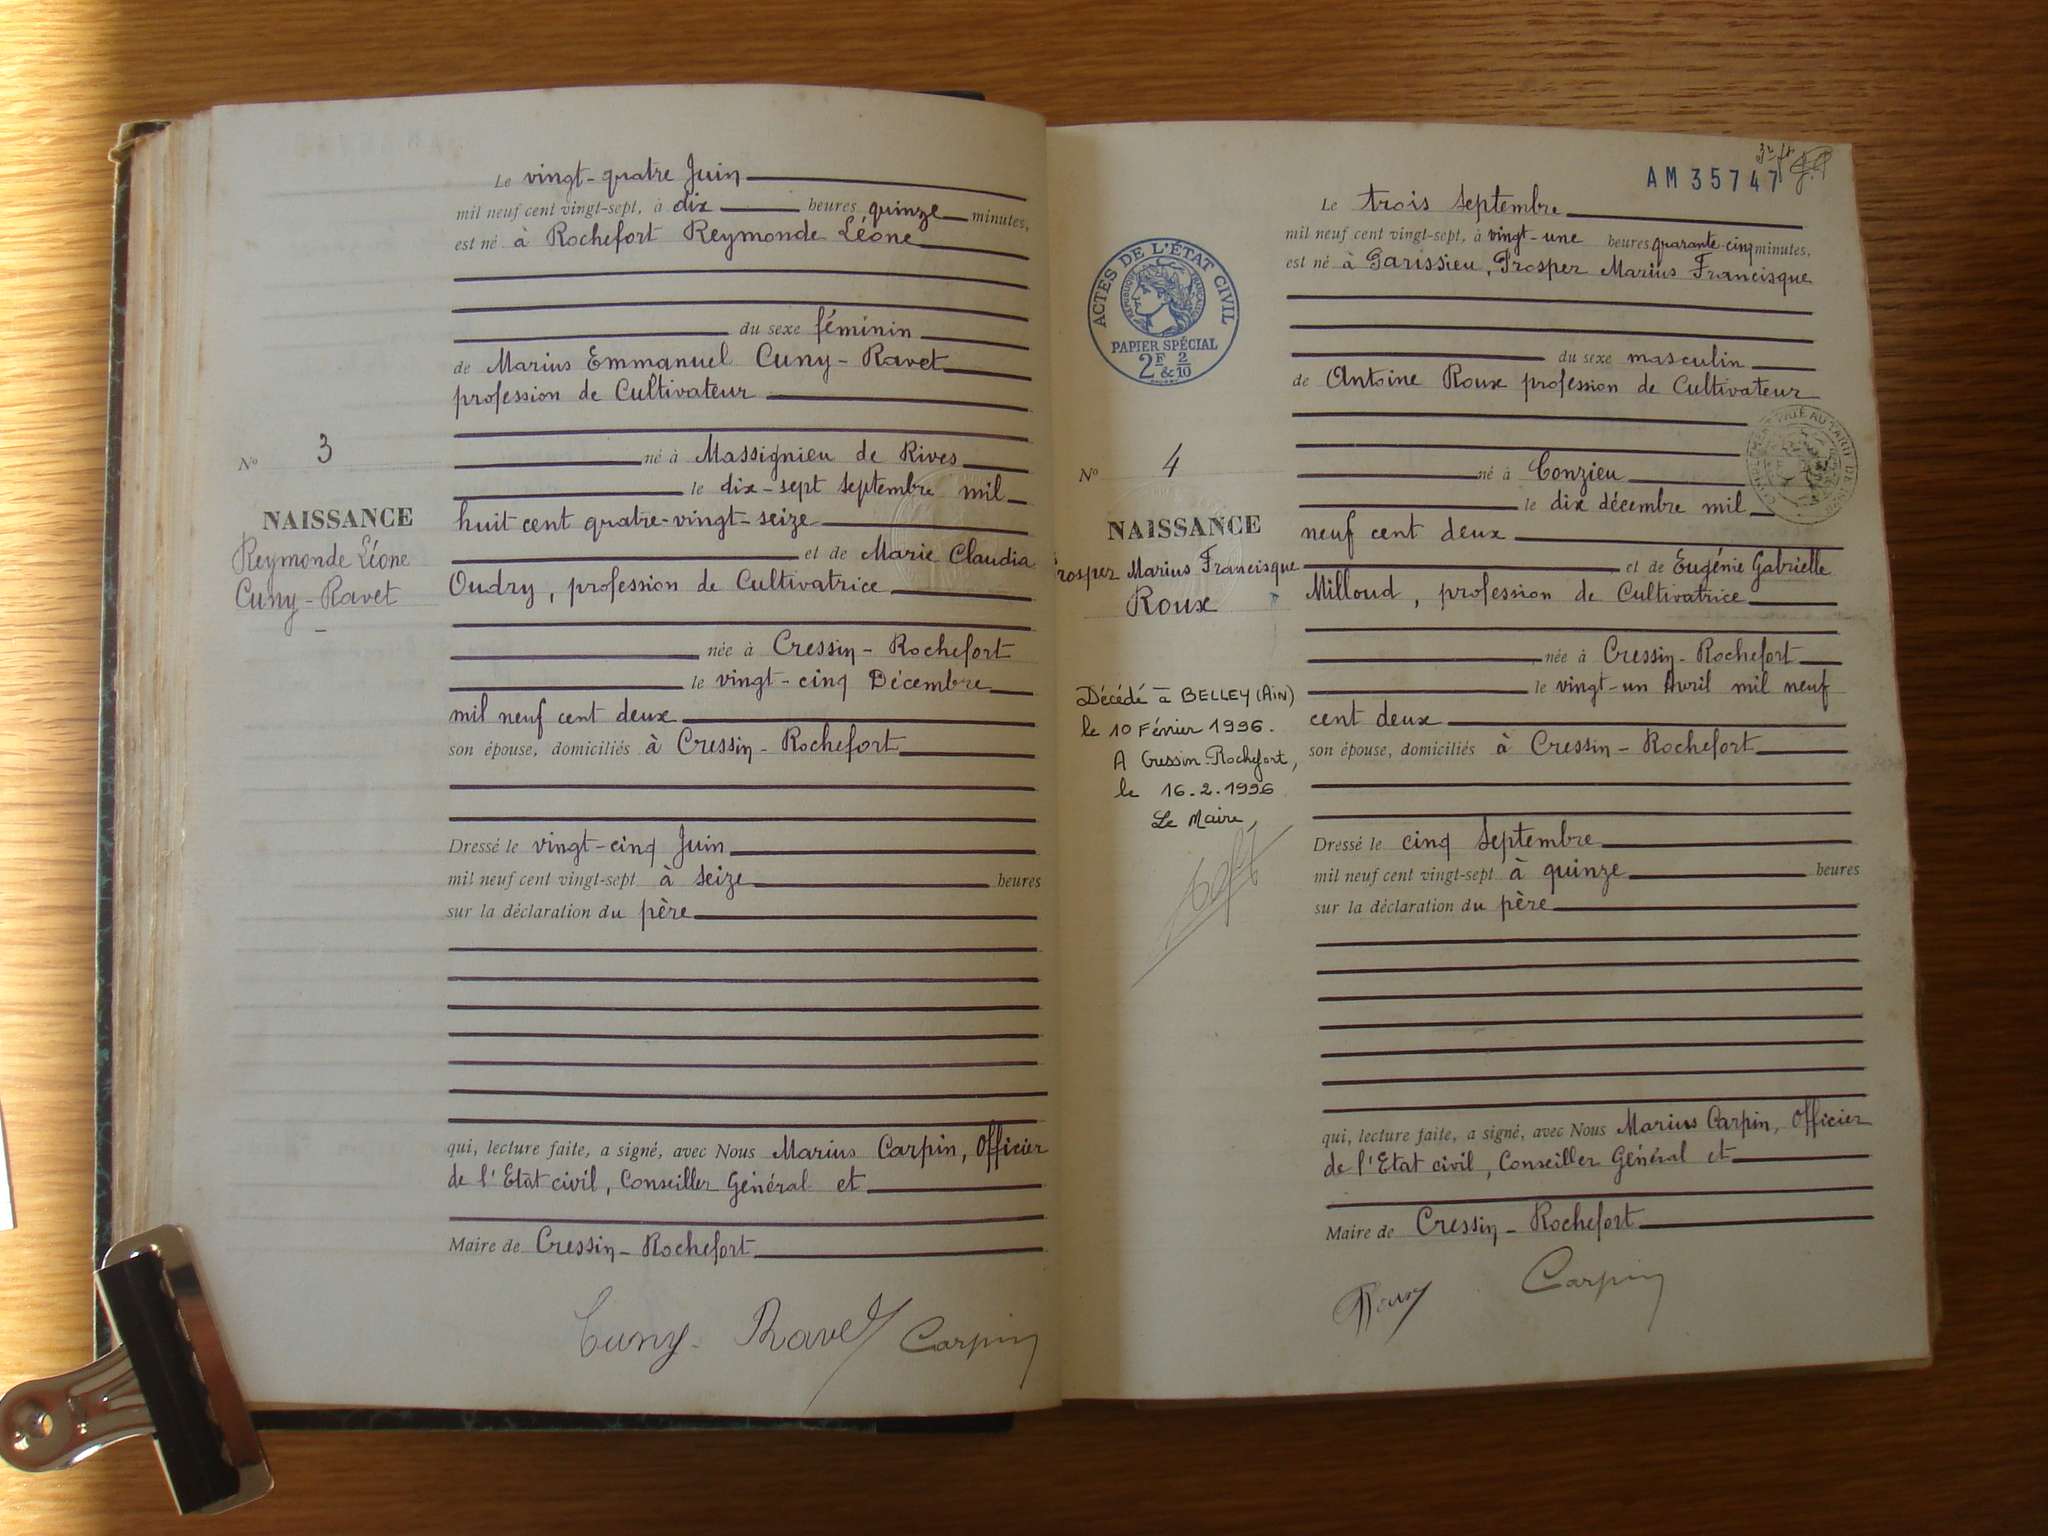 Le vingt-quatre Juin
mil neuf cent vingt-sept, à dix heures quinze minutes,
est né à Rochefort Reymonde Léone
du sexe féminin
de Marius Emmanuel Cuny-Ravet
profession de Cultivateur
né à Massignieu de Rives
le dix-sept septembre mil
huit cent quatre-vingt-seize
et de Marie Claudia
Oudry, profession de Cultivatrice
née à Cressin-Rochefort
le vingt-cinq Décembre
mil neuf cent deux
son épouse, domiciliés à Cressin-Rochefort
Dressé le vingt-cinq Juin
mil neuf cent vingt-sept à seize heures
sur la déclaration du père
qui, lecture faite, a signé, avec Nous Marius Carpin, Officier
de l'Etat civil, Conseiller Général et
Maire de Cressin-Rochefort
Cuny-Ravet Carpin
No 3
NAISSANCE
Reymonde Léone
Cuny-Ravet
AM 35747
ACTES DE L'ÉTAT CIVIL
RÉPUBLIQUE FRANÇAISE
PAPIER SPÉCIAL
2F & 2/10
No 4
NAISSANCE
Prosper Marius Francisque
Roux
Décédé à BELLEY (Ain)
le 10 Février 1996.
A Cressin-Rochefort,
le 16.2.1996
Le Maire,
Le trois septembre
mil neuf cent vingt-sept, à vingt-une heures quarante-cinq minutes,
est né à Garissieu, Prosper Marius Francisque
du sexe masculin
de Antoine Roux profession de Cultivateur
né à Conzieu
le dix décembre mil
neuf cent deux
et de Eugénie Gabrielle
Milloud, profession de Cultivatrice
née à Cressin-Rochefort
le vingt-un Avril mil neuf
cent deux
son épouse, domiciliés à Cressin-Rochefort
Dressé le cinq septembre
mil neuf cent vingt-sept à quinze heures
sur la déclaration du père
qui, lecture faite, a signé, avec Nous Marius Carpin, Officier
de l'Etat civil, Conseiller Général et
Maire de Cressin-Rochefort
Roux Carpin